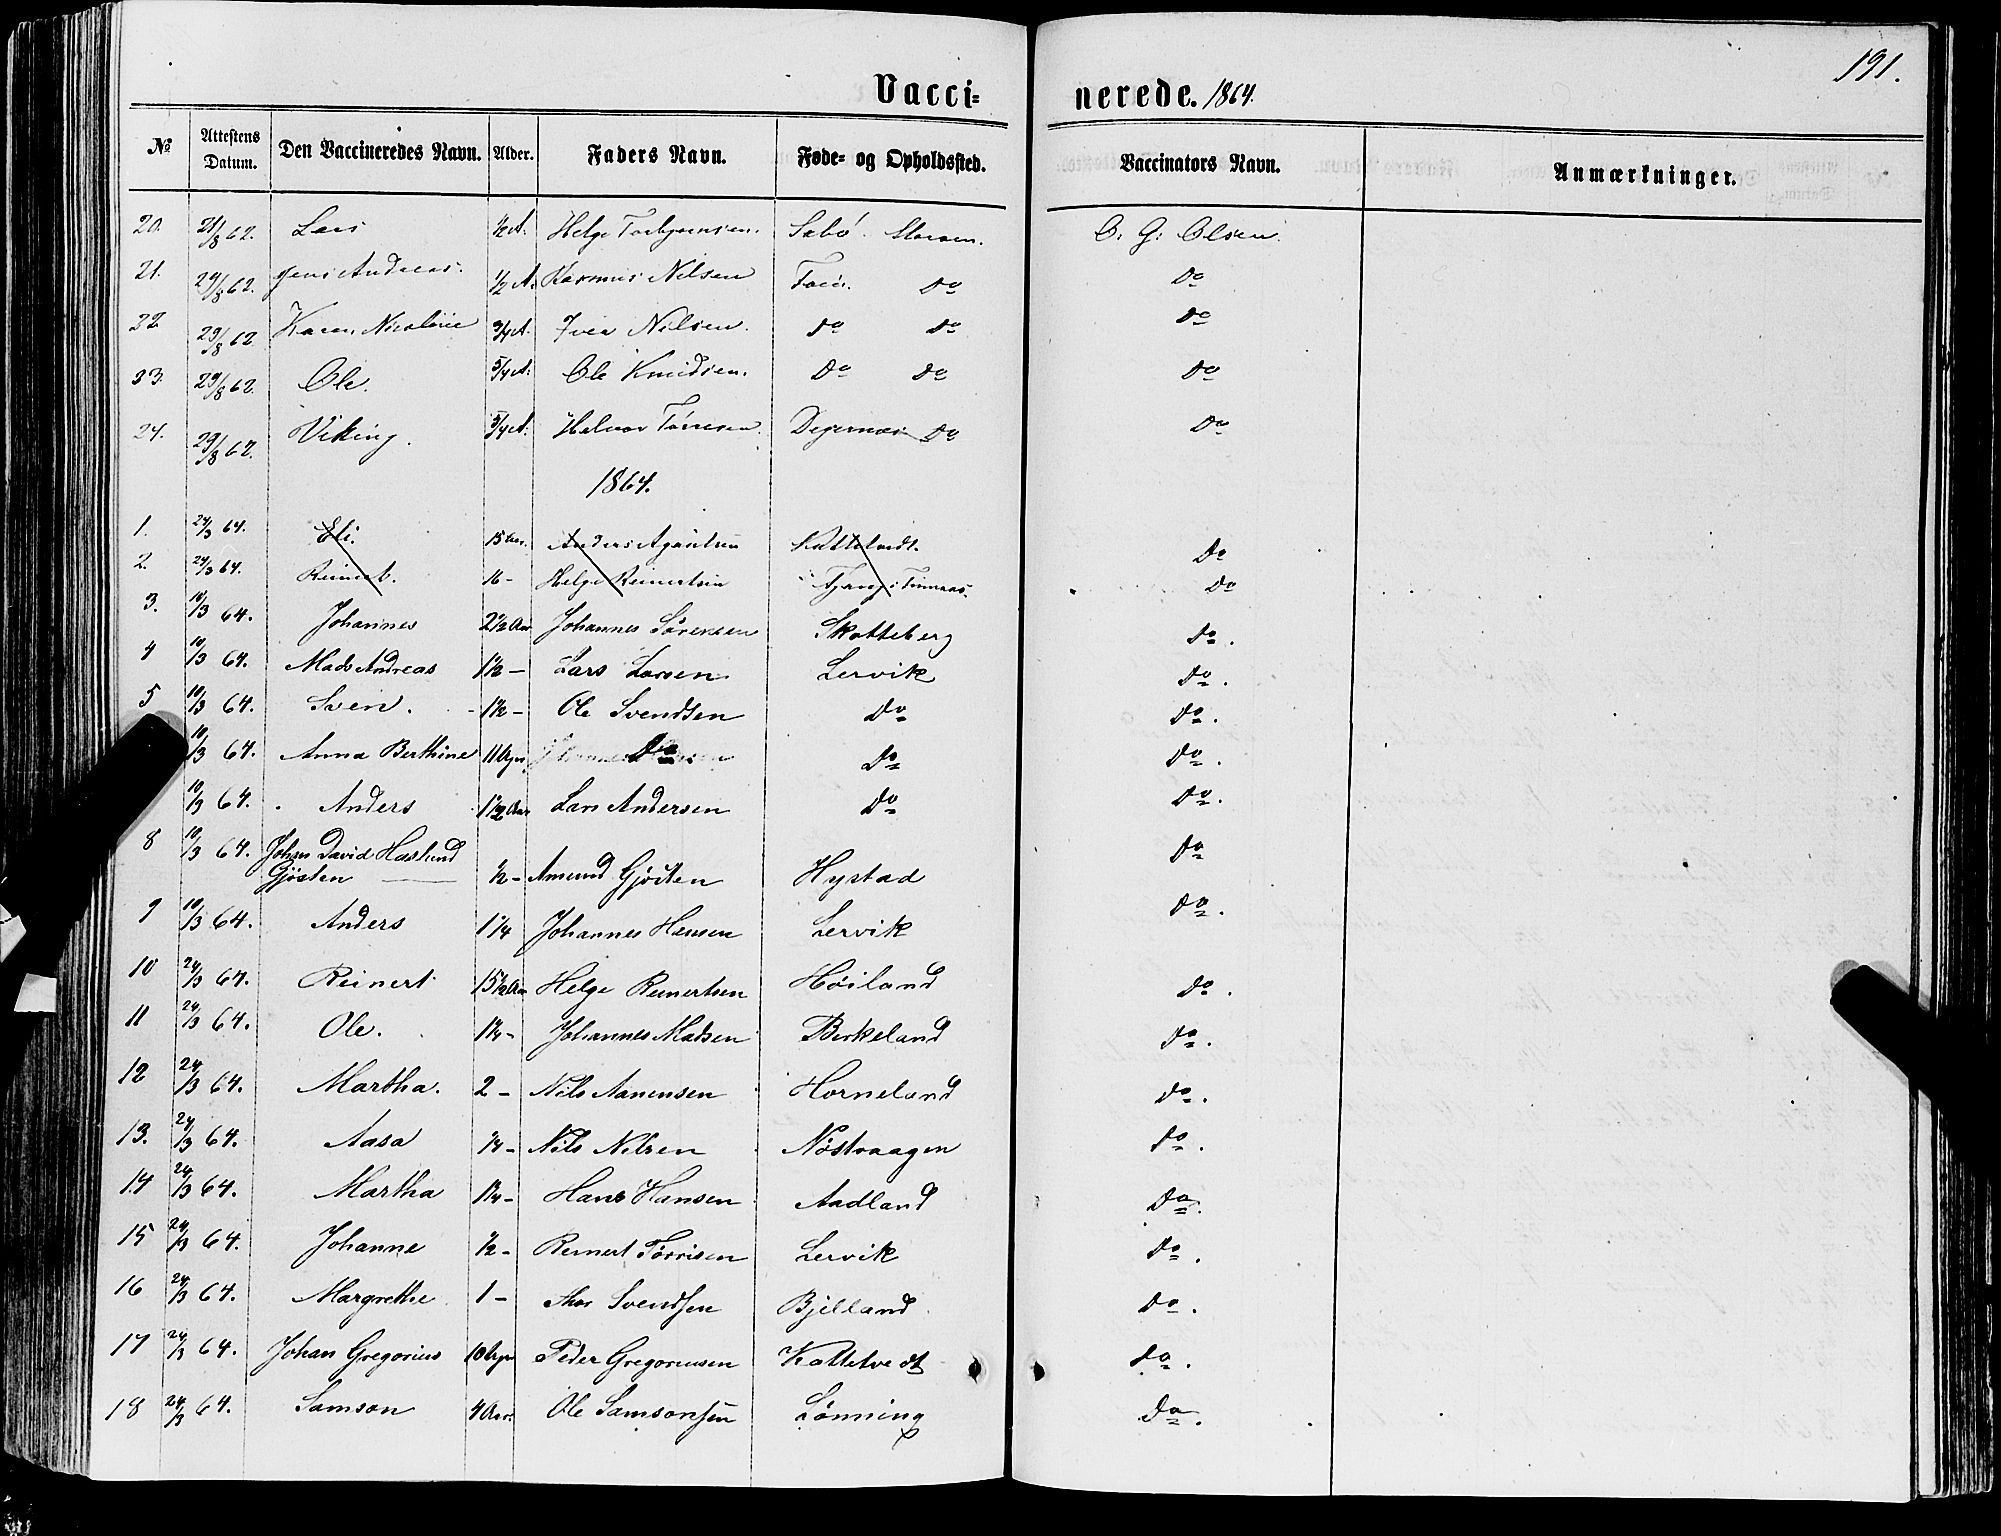 191.
Vacci= nerede. 1864.
No Attestens Datum. Den Vaccineredes Navn. Alder. Faders Navn. Føde= og Opholdssted. Vaccinators Navn. Anmærkninger.
20. 62. Lars ½ A. Helge Sæbø. O. G. Olsen
21. 29/8 62. Jens Andreas. ½ A. Rasmus Nilsen Do Do
22. 29/8 62 Karen Nicoline ¾ A. Iver Nilsen. Do Do Do
23. 29/8 62. Ole. 5/4 A. Ole Knudsen. Do Do Do
24. 29/8 62. Viking. 5/4 A. Helver Tørresen. Degernæs Do Do
1864.
1. 24/3 64. Eli. 15 Anders Kattetvedt. Do
2. 24/3 64. Reinert. 16 - Helge Reinertsen Do
3. 10/3 64. Johannes 2½ Aar Johannes Sørensen Skotteberg Do.
4 10/3 64. Mads Andreas 1½ - Lars Larsen Lervik Do.
5 10/3 64. Svein. 1½ - Ole Svendsen Do Do.
10/3 64. Anna Berthine 11 Do. Do Do.
10/3 64. Anders 1½ Aar Lars Andersen Do Do.
8 10/3 64. Johan David Haslund
Gjøsten ½ - Amund Gjøsten Hystad Do
9 10/3 64. Anders 1¼ Johannes Hansen Lervik Do.
10 24/3 64. Reinert 15½ Aar Helge Reinertsen Høiland Do.
11 24/3 64. Ole. 1¼ - Johannes Madsen Birkeland Do.
12 24/3 64. Martha. 2 - Nils Aanensen Horneland Do.
13. 24/3 64. Aasa ¼ - Nils Nilsen Nøstvaagen Do.
14 24/3 64. Martha 1¼ - Hans Hansen Aadland Do.
15 24/3 64. Johanne ½ - Reinert Tørrisen Lervik Do.
16 24/3 64. Margrethe 1 - Thor Svendsen Bjelland Do.
17 24/3 64. Johan Gregorius 10 Peder Gregoriusen Kattetvedt Do.
18 24/3 64. Samson 4 Aar Ole Samsonsen Lønning Do.